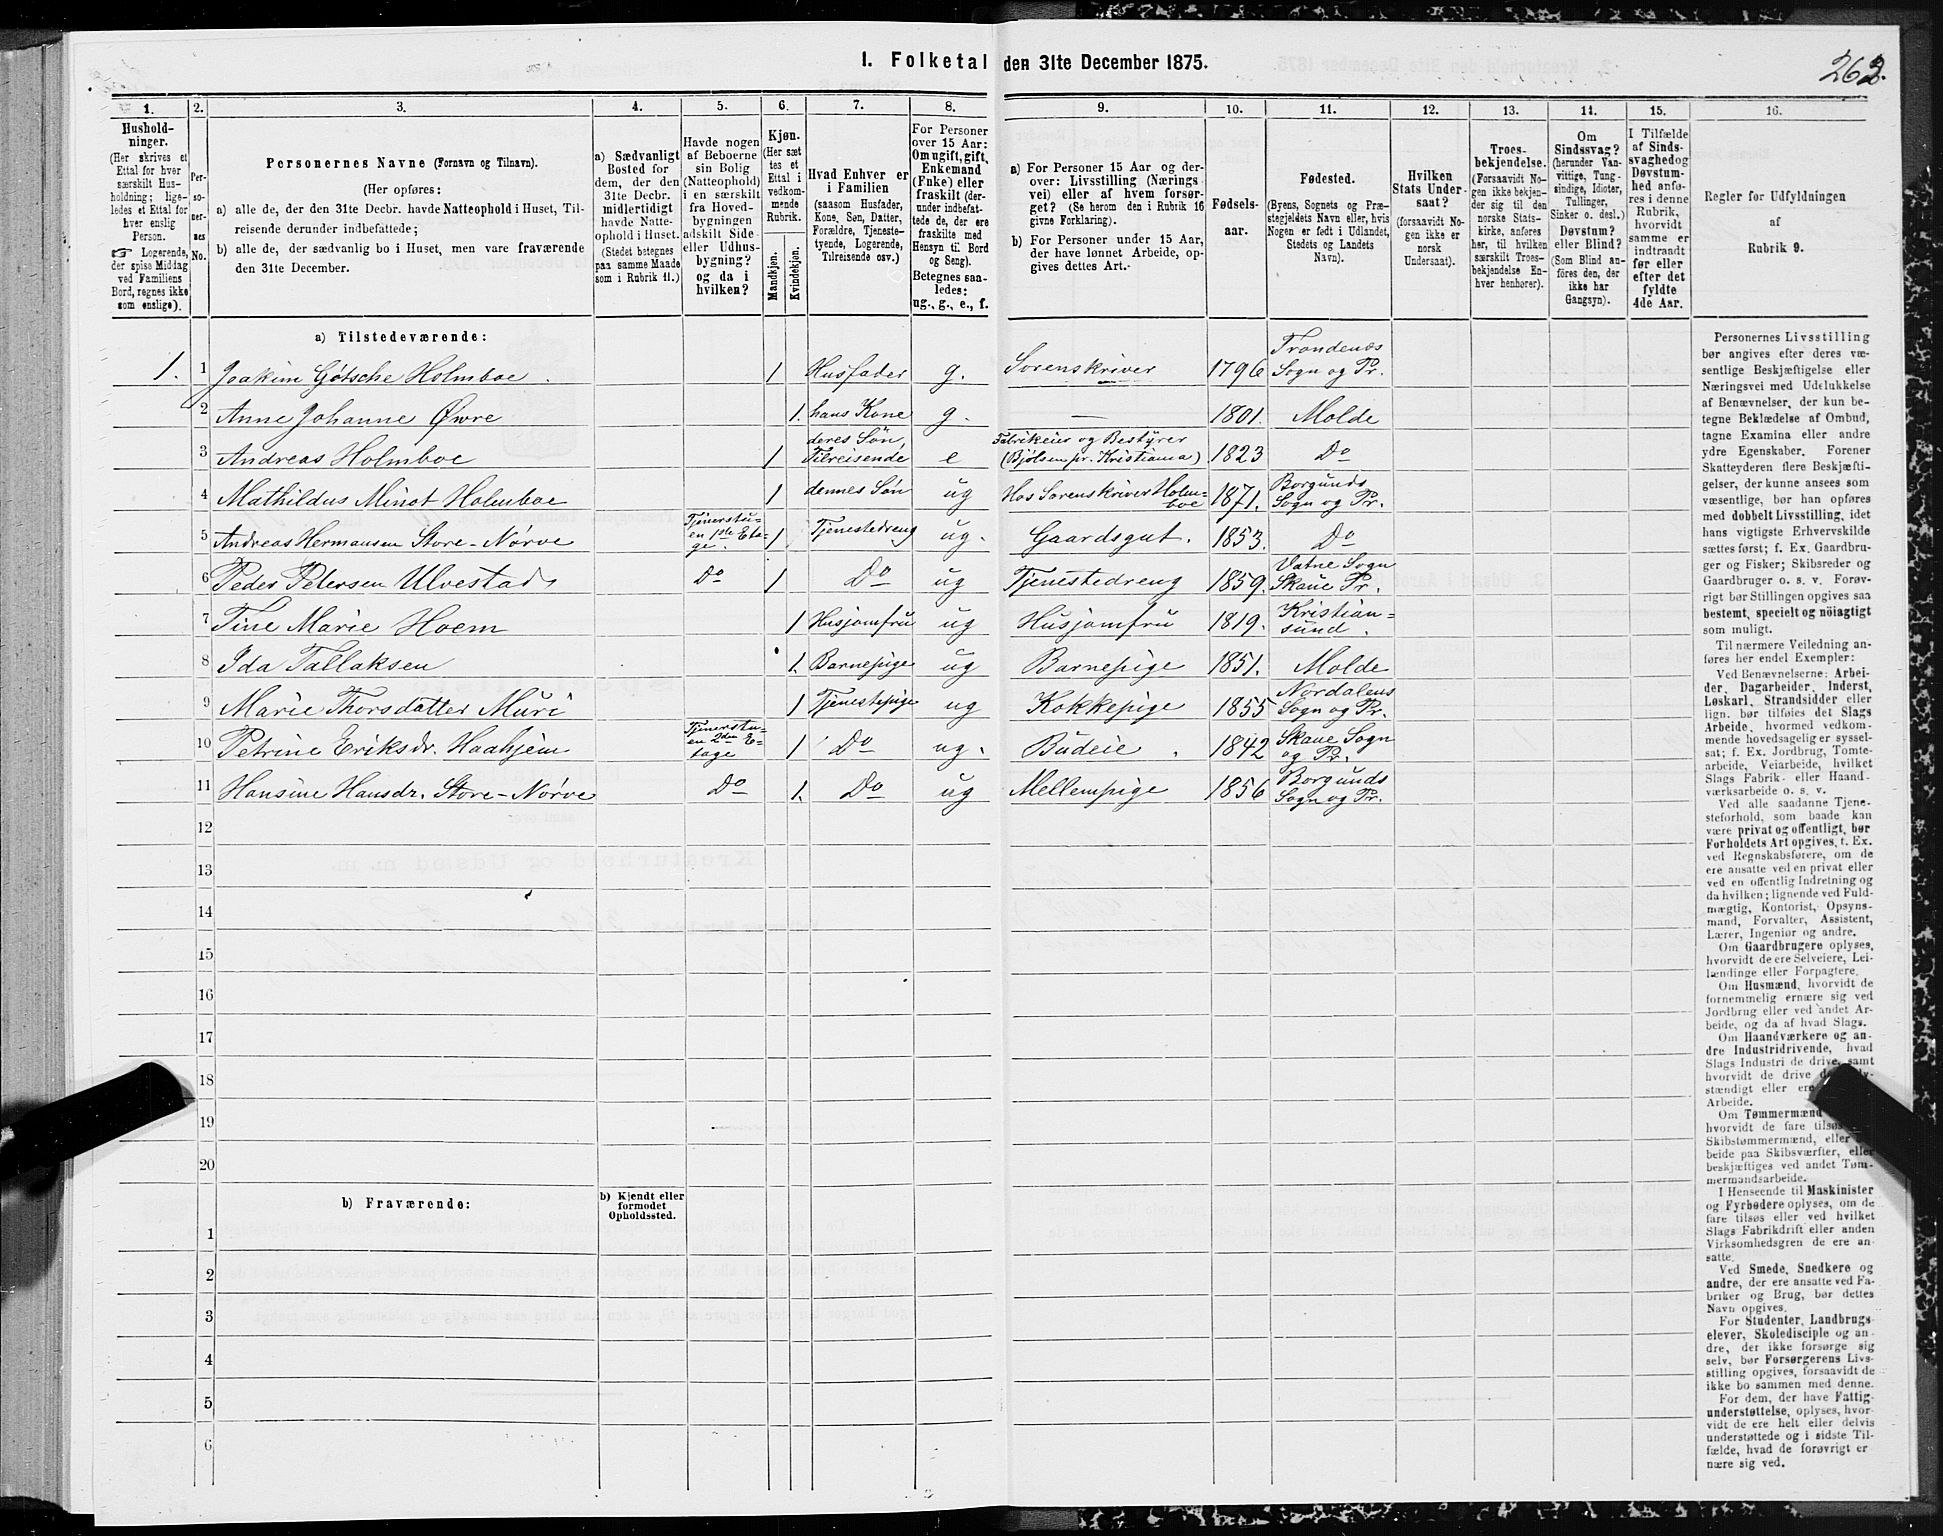 1. Folketal den 31te December 1875.
262.
1. 2. 3. 4. 5. 6. 7. 8. 9. 10. 11. 12. 13. 14. 15. 16.
Hushold-
ninger.
(Her skrives et
Ettal for hver
særskilt Hus-
holdning; lige-
ledes et Ettal for
hver enslig
Person.
☞ Logerende,
der spise Middag
ved Familiens
Bord, regnes ikke
som enslige).
Per-
so-
ner-
nes
No.
Personernes Navne (Fornavn og Tilnavn).
(Her opføres:
a) alle de, der den 31te Decbr. havde Natteophold i Huset, Til-
reisende derunder indbefattede;
b) alle de, der sædvanlig bo i Huset, men vare fraværende
den 31te December.
a) Sædvanligt
Bosted for
dem, der den
31te Decbr.
midlertidigt
havde Natte-
ophold i Huset.
(Stedet betegnes
paa samme Maade
som i Rubrik 11.)
Havde nogen
af Beboerne
sin Bolig
(Natteophold)
i en særskilt
fra Hoved-
bygningen
adskilt Side-
eller Udhus-
bygning?
og da i
hvilken?
Kjøn.
(Her sæt
tes et
Ettal i
vedkom-
mende
Rubrik.
Mandkjøn.
Kvindekjøn.
Hvad Enhver er
i Familien
(saasom Husfader,
Kone, Søn, Datter,
Forældre, Tjeneste-
tyende, Logerende,
Tilreisende osv.)
For Personer
over 15 Aar:
Om ugift, gift,
Enkemand
(Enke) eller
fraskilt (der-
under indbefat-
tede de, der ere
fraskilte med
Hensyn til Bord
og Seng).
Betegnes saa-
ledes:
ug., g., e., f.
a) For Personer 15 Aar og der-
over: Livsstilling (Nærings-
vei) eller af hvem forsør-
get? (Se herom den i Rubrik 16
givne Forklaring).
b) For Personer under 15 Aar,
der have lønnet Arbeide, op-
gives dettes Art.
Fødsels-
aar.
Fødested.
(Byens, Sognets og Præ-
stegjeldets Navn eller, hvis
Nogen er født i Udlandet,
Stedets og Landets
Navn).
Hvilken
Stats Under-
saat?
(forsaavidt No-
gen ikke er
norsk
Undersaat).
Troes-
bekjendelse.
(Forsaavidt No-
gen ikke bekjen-
der sig til den
norske Stats-
kirke, anføres
her, til hvilken
særskilt Troes-
bekjendelse En-
hver henhører).
Om
Sindssvag?
(herunder Van-
vittige, Tung-
sindige, Idioter,
Tullinger,
Sinker o. desl.)
Døvstum?
eller Blind?
(Som Blind an-
føres den, der
ikke har
Gangsyn).
I Tilfælde
af Sinds-
svaghed og
Døvstum-
hed anfø-
res i denne
Rubrik,
hvorvidt
samme er
indtraadt
før eller
efter det
fyldte
4de Aar.
Regler for Udfyldningen
af
Rubrik 9.
a) Tilstedeværende:
1. 1 Joakim Götsche Holmboe 1 Husfader g. Sorenskriver 1796 Trondenæs Sogn og Pr.
2 Anne Johanne Øwre 1. hans Kone g. — 1801. Molde
3 Andreas Holmboe 1 deres Søn, Tilreisende e Fabrikeier og Bestyrer (Bjølsen pr. Kristiania) 1823 Do
4 Mathildus Minot Holmboe 1 dennes Søn ug Hos Sorenskriver Holmboe 1871. Borgunds Sogn og Pr.
5 Andreas Hermansen Store-Nørve Tjenerstuen 1ste Etage. 1 Tjenestedreng ug. Gaardsgut. 1853. Do
6 Peder Petersen Ulvestad Do 1 Do ug Tjenestedreng 1859. Vatne Sogn Skaue Pr.
7 Tine Marie Hoem 1 Husjomfru ug Husjomfru 1819. Kristiansund.
8 Ida Tallaksen 1. Barnepige ug Barnepige 1851. Molde
9 Marie Thorsdatter Muri 1 Tjenestepige ug Kokkepige 1855 Nordalens Sogn og Pr.
10 Petrine Eriksdr. Haahjem Tjenerstuen 2den Etage 1 Do ug. Budeie 1842 Skaue Sogn og Pr.
11 Hansine Hansdr. Store-Nørve Do 1. Do ug Mellempige 1856 Borgunds Sogn og Pr.
12
13
14
15
16
17
18
19
20
b) Fraværende:
b) Kjendt eller
formodet
Opholdssted.
1
2
3
4
5
6
Personernes Livsstilling
bør angives efter deres væ-
sentlige Beskjæftigelse eller
Næringsvei med Udelukkelse
af Benævnelser, der kun be-
tegne Beklædelse af Ombud,
tagne Examina eller andre
ydre Egenskaber. Forener
Skatteyderen flere Beskjæfti-
gelser, der kunne ansees som
væsentlige, bør han opføres
med dobbelt Livsstilling, idet
hans vigtigste Erhvervskilde
sættes først; f. Ex. Gaardbru-
ger og Fisker; Skibsreder og
Gaardbruger o. s. v. Forøv-
rigt bør Stillingen opgives saa
bestemt, specielt og nöiagtigt
som muligt.
Til nærmere Veiledning an-
føres her endel Exempler:
Ved Benævnelserne: Arbei-
der, Dagarbeider, Inderst,
Løskarl, Strandsidder eller
lign. bør tilføies det Slags
Arbeide, hvormed vedkom-
mende hovedsagelig er syssel-
sat; f. Ex. Jordbrug, Tomte-
arbeide, Veiarbeide, hvilket
Slags Fabrik- eller Haand-
værksarbeide o. s. v.
Ved alle saadanne Tjene-
steforhold, som baade kan
være privat og offentligt, bør
Forholdets Art opgives, f. Ex.
ved Regnskabsførere, om de
ere ansatte ved en privat eller
ved en offentlig Indretning og
da hvilken; lignende ved Fuld-
mægtig, Kontorist, Opsyns-
mand, Forvalter, Assistent,
Lærer, Ingeniør og andre.
Om Gaardbrugere oplyses,
hvorvidt de ere Selveiere, Lei-
lændinge eller Forpagtere.
Om Husmænd, hvorvidt de
fornemmelig ernære sig ved
Jordbrug eller ved andet Ar-
beide, og da af hvad Slags.
Om Haandværkere og an-
dre Industridrivende, hvad
Slags Industri de drive, samt
hvorvidt de drive
stændigt eller ere
Arbeide.
Om Tømmermænd
hvorvidt de fare tilsøs
Skibstømmermænd, eller
beide paa Skibsværfter, eller
beskjæftiges ved andet Tøm-
mermandsarbeide.
I Henseende til Maskinister
og Fyrbødere oplyses, om de
fare tilsøs eller ved hvilket
Slags Fabrikdrift eller anden
Virksomhedsgren de ere an-
satte.
Ved Smede, Snedkere og
andre, der ere ansatte ved Fa-
briker og Brug, bør dettes
Navn opgives.
For Studenter, Landbrugs-
elever, Skoledisciple og an-
dre, der ikke forsørge sig
selv, bør Forsørgerens Livs-
stilling opgives, forsaavidt de
ikke bo sammen med denne.
For dem, der have Fattig-
understøttelse, oplyses, hvor-
vidt de ere helt eller delvis
understøttede og i sidste Til-
fælde, hvad de forøvrigt er
nære sig ved.